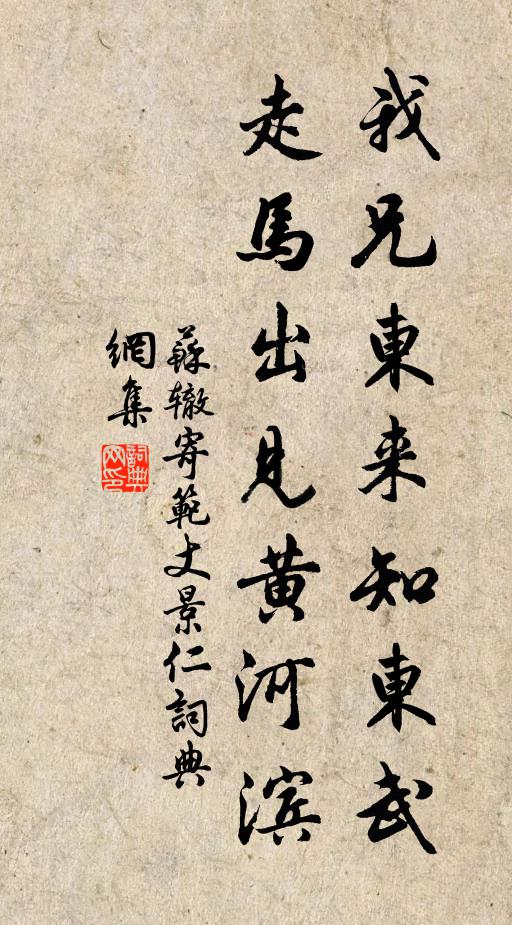 我兄東来知東武
走馬出見黄河滨
蘇辙寄範丈景仁詞典
網集
詞典网印